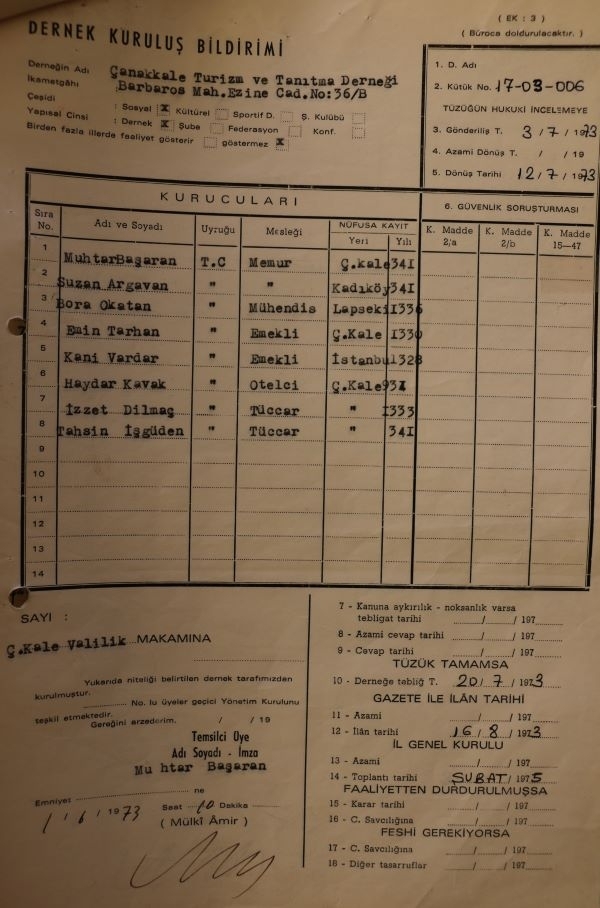 ( EK : 3 )
DERNEK KURULUŞ BİLDİRİMİ
( Büroca doldurulacaktır. )
Derneğin Adı : Çanakkale Turizm ve Tanıtma Derneği
İkametgâhı Barbaros Mah.Ezine Cad.No:36/B
Çeşidi : Sosyal X Kültürel Sportif D. Ş. Kulübü
Yapısal Cinsi : Dernek X Şube Federasyon Konf.
Birden fazla illerde faaliyet gösterir göstermez X
1. D. Adı
2. Kütük No. 17-03-006
TÜZÜĞÜN HUKUKİ İNCELEMEYE
3. Gönderiliş T. 3 / 7 / 1973
4. Azami Dönüş T. / / 19
5. Dönüş Tarihi 12 / 7 / 1973
KURUCULARI
6. GÜVENLİK SORUŞTURMASI
Sıra No. Adı ve Soyadı Uyruğu Mesleği NÜFUSA KAYIT Yeri Yılı K. Madde 2/a K. Madde 2/b K. Madde 15—47
1 MuhtarBaşaran T.C Memur Ç.kale 341
2 Suzan Argavan " " Kadıköy 341
3 Bora Okatan " Mühendis Lapseki 1336
4 Emin Tarhan " Emekli Ç.Kale 1330
5 Kani Vardar " Emekli İstanbul 1328
6 Haydar Kavak " Otelci Ç.Kale 931
7 İzzet Dilmaç " Tüccar " 1333
8 Tahsin İşgüden " Tüccar " 341
9
10
11
12
13
14
SAYI :
Ç.Kale Valilik MAKAMINA
Yukarıda niteliği belirtilen dernek tarafımızdan
kurulmuştur.
No. lu üyeler geçici Yönetim Kurulunu
teşkil etmektedir.
Gereğini arzederim. / / 19
Temsilci Üye
Adı Soyadı - İmza
Mu htar Başaran
Emniyet ne
1 / 6 / 1973 Saat 10 Dakika
( Mülkî Âmir )
7 - Kanuna aykırılık - noksanlık varsa
tebligat tarihi / / 197
8 - Azami cevap tarihi / / 197
9 - Cevap tarihi / / 197
TÜZÜK TAMAMSA
10 - Derneğe tebliğ T. 20 / 7 / 1973
GAZETE İLE İLÂN TARİHİ
11 - Azami / / 197
12 - İlân tarihi 16 / 8 / 1973
İL GENEL KURULU
13 - Azami / / 197
14 - Toplantı tarihi ŞUBAT / 1975
FAALİYETTEN DURDURULMUŞSA
15 - Karar tarihi / / 197
16 - C. Savcılığına / / 197
FESHİ GEREKİYORSA
17 - C. Savcılığına / / 197
18 - Diğer tasarruflar / / 197